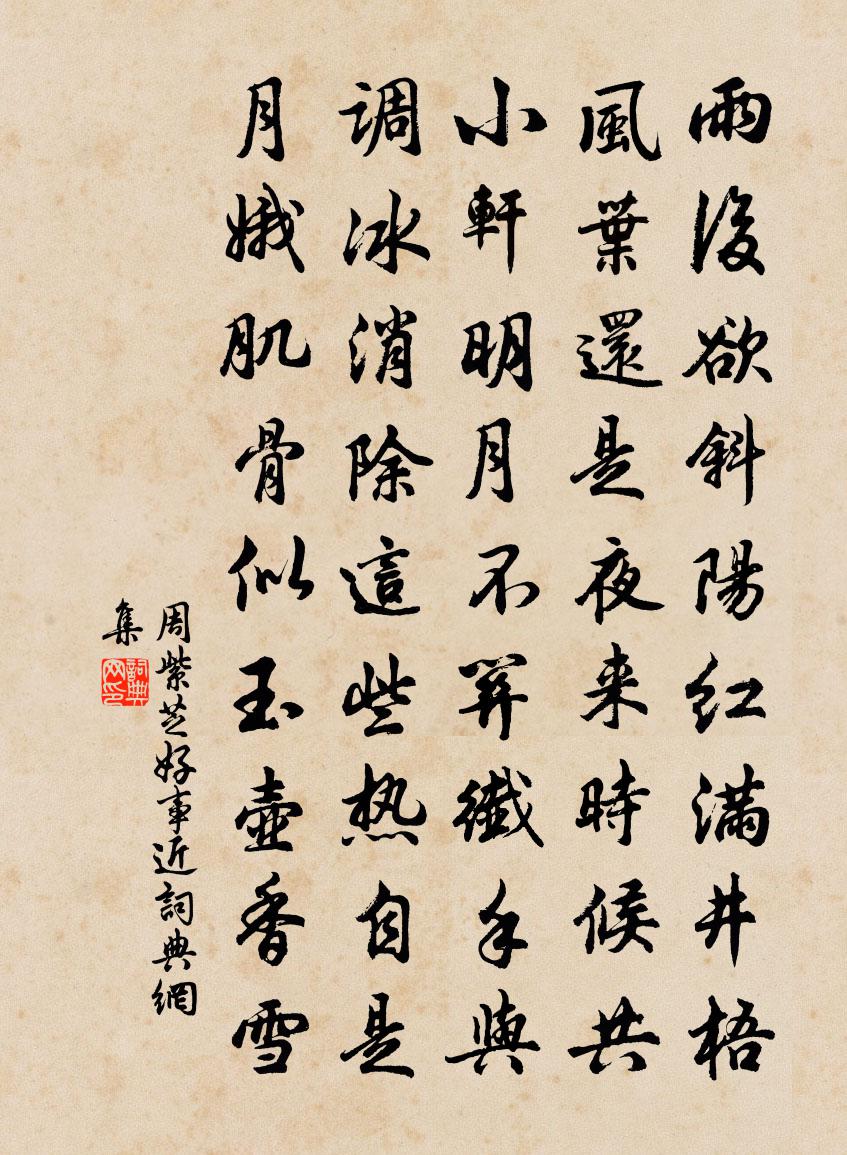 雨後欲斜陽紅滿井梧
風葉還是夜来時候共
小軒明月不算纖手與
调冰消除這些热自是
月娥肌骨似玉壺香雪
周紫芝好事近詞典網
集
詞典
网印